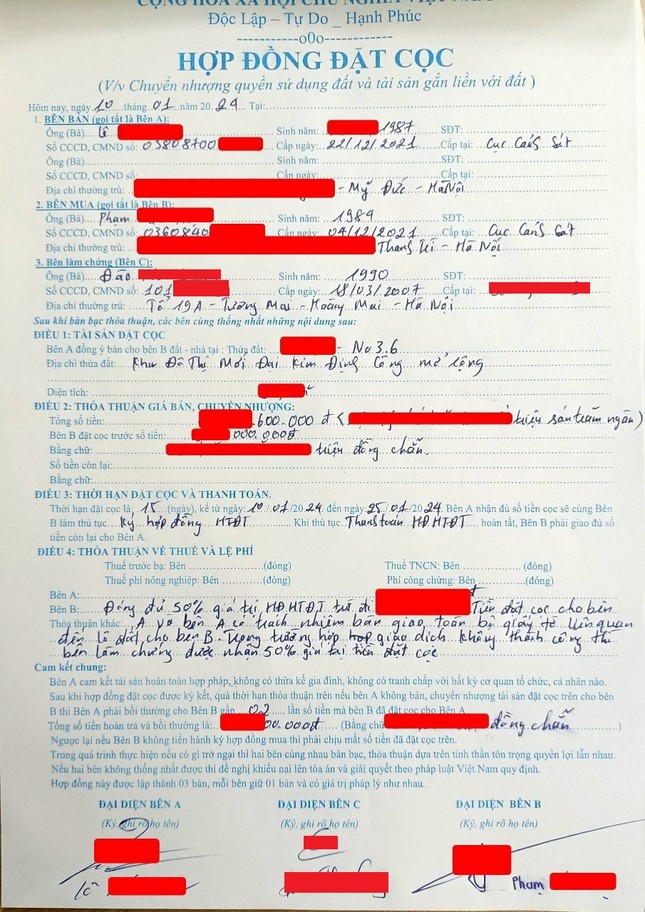 CỘNG HÒA XÃ HỘI CHỦ NGHĨA VIỆT NAM
Độc Lập – Tự Do _ Hạnh Phúc
-----------o0o-----------
HỢP ĐỒNG ĐẶT CỌC
( V/v Chuyển nhượng quyền sử dụng đất và tài sản gắn liền với đất )
Hôm nay, ngày 10 tháng 01 năm 20 24 Tại:
1. BÊN BÁN (gọi tắt là Bên A):
Ông (Bà) Lê Sinh năm: 1987 SĐT:
Số CCCD, CMND số: 03808700 Cấp ngày: 22/12/2021 Cấp tại: Cục Cảnh Sát
Ông (Bà) Sinh năm: SĐT:
Số CCCD, CMND số: Cấp ngày: Cấp tại:
Địa chỉ thường trú: - Mỹ Đức - Hà Nội
2. BÊN MUA (gọi tắt là Bên B):
Ông (Bà) Phạm Sinh năm: 1984 SĐT:
Số CCCD, CMND số: 0360840 Cấp ngày: 04/12/2021 Cấp tại: Cục Cảnh Sát
Địa chỉ thường trú: Thanh Trì - Hà Nội
3. Bên làm chứng (Bên C):
Ông (Bà) Đào Sinh năm: 1990 SĐT:
Số CCCD, CMND số: 101 Cấp ngày: 18/03/2007 Cấp tại:
Địa chỉ thường trú: Tổ 19A - Tương Mai - Hoàng Mai - Hà Nội
Sau khi bàn bạc thỏa thuận, các bên cùng thống nhất những nội dung sau:
ĐIỀU 1: TÀI SẢN ĐẶT CỌC
Bên A đồng ý bán cho bên B đất - nhà tại : Thửa đất: - No 3.6
Địa chỉ thửa đất: Khu Đô Thị Mới Đại Kim Định Công mở rộng
Diện tích:
ĐIỀU 2: THỎA THUẬN GIÁ BÁN, CHUYỂN NHƯỢNG:
Tổng số tiền: .600.000 đ ( triệu sáu trăm ngàn)
Bên B đặt cọc trước số tiền: 000.000đ
Bằng chữ: triệu đồng chẵn.
Số tiền còn lại:
Bằng chữ:
ĐIỀU 3: THỜI HẠN ĐẶT CỌC VÀ THANH TOÁN.
Thời hạn đặt cọc là: 15 (ngày), kể từ ngày 10 / 01 /20 24 đến ngày 25 / 01 /20 24. Bên A nhận đủ số tiền cọc sẽ cùng Bên
B làm thủ tục Ký hợp đồng HTĐT Khi thủ tục Thanh toán HĐHTĐT hoàn tất, Bên B phải giao đủ số
tiền còn lại cho Bên A.
ĐIỀU 4: THỎA THUẬN VỀ THUẾ VÀ LỆ PHÍ
Thuế trước bạ: Bên (đóng) Thuế TNCN: Bên (đóng)
Thuế phi nông nghiệp: Bên (đóng) Phí công chứng: Bên (đóng)
Bên A:
Bên B: Đóng đủ 50% giá trị HĐHTĐT trừ đi Tiền đặt cọc cho bên
Thỏa thuận khác: A và bên A có trách nhiệm bàn giao toàn bộ giấy tờ liên quan
đến lô đất cho bên B. Trong trường hợp giao dịch không thành công thì
bên làm chứng được nhận 50% giá trị tiền đặt cọc
Cam kết chung:
Bên A cam kết tài sản hoàn toàn hợp pháp, không có thừa kế gia đình, không có tranh chấp với bất kỳ cơ quan tổ chức, cá nhân nào.
Sau khi hợp đồng đặt cọc được ký kết, quá thời hạn thỏa thuận trên nếu bên A không bán, chuyển nhượng tài sản đặt cọc trên cho bên
B thì Bên A phải bồi thường cho Bên B gấp 02 lần số tiền mà bên B đã đặt cọc cho Bên A
Tổng số tiền hoàn trả và bồi thường là: 00.000đ (Bằng chữ đồng chẵn )
Ngược lại nếu Bên B không tiến hành ký hợp đồng mua thì phải chịu mất số tiền đã đặt cọc trên.
Trong quá trình thực hiện nếu có gì trở ngại thì hai bên cùng nhau bàn bạc, thỏa thuận dựa trên tinh thần tôn trọng quyền lợi lẫn nhau.
Nếu hai bên không thống nhất được thì đề nghị khiếu nại lên tòa án và giải quyết theo pháp luật Việt Nam quy định.
Hợp đồng này được lập thành 03 bản, mỗi bên giữ 01 bản và có giá trị pháp lý như nhau.
ĐẠI DIỆN BÊN A ĐẠI DIỆN BÊN C ĐẠI DIỆN BÊN B
(Ký, ghi rõ họ tên) (Ký, ghi rõ họ tên) (Ký, ghi rõ họ tên)
Lê Phạm